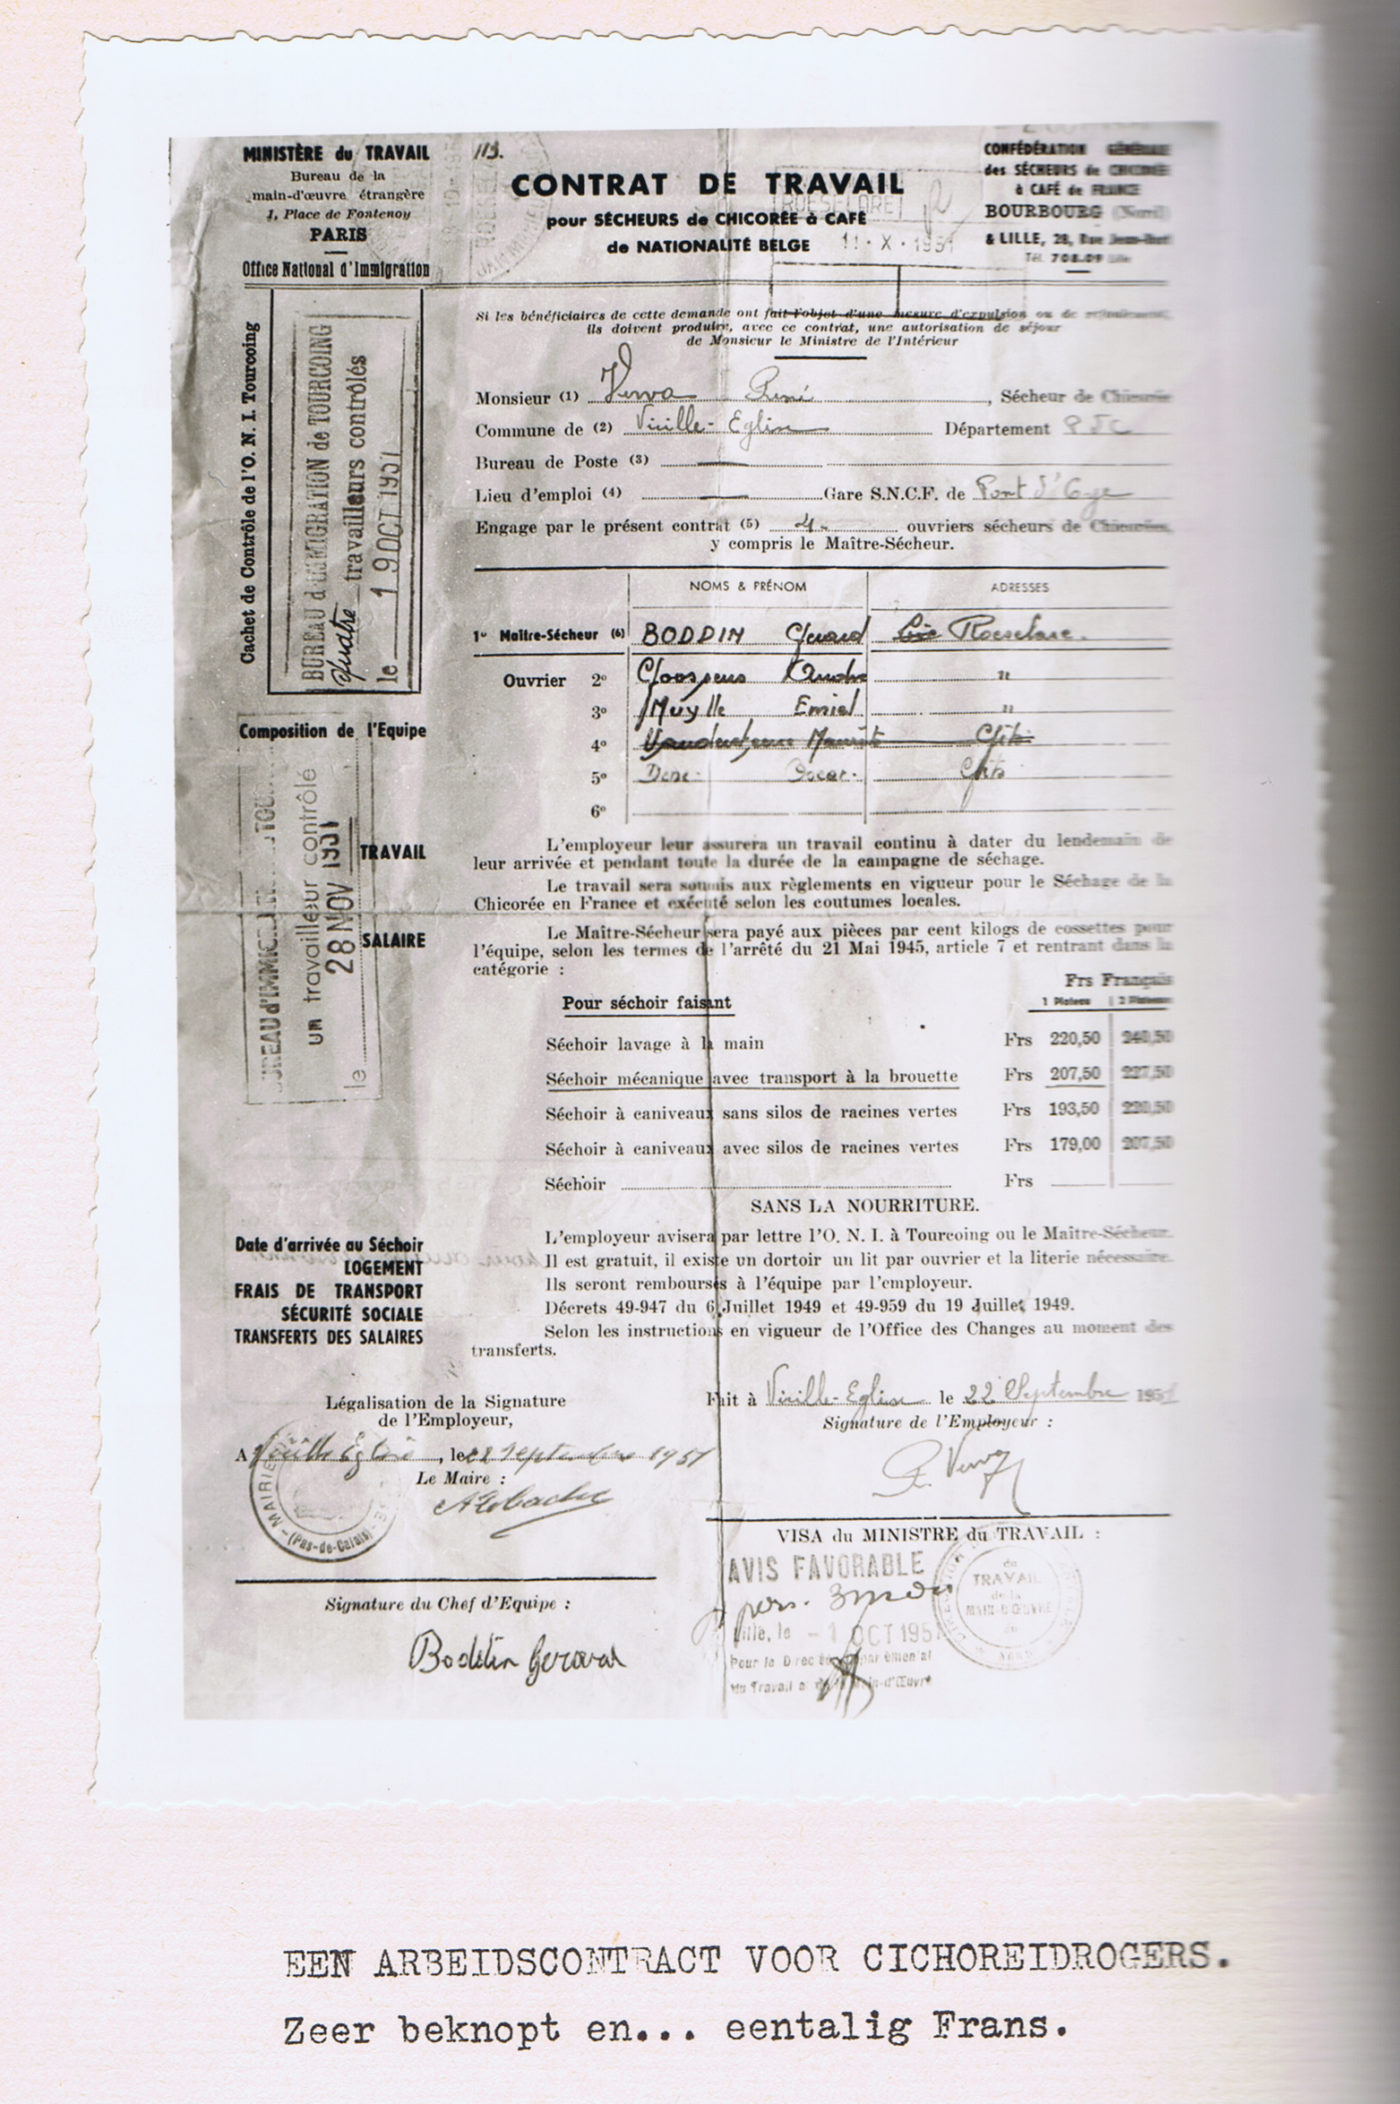 MINISTÈRE du TRAVAIL
Bureau de la
main-d'œuvre étrangère
1, Place de Fontenoy
PARIS
Office National d'Immigration
113.
CONTRAT DE TRAVAIL
pour SÉCHEURS de CHICORÉE à CAFÉ
de NATIONALITÉ BELGE
11·X·1951
CONFÉDÉRATION GÉNÉRALE
des SÉCHEURS de CHICORÉE
à CAFÉ de FRANCE
BOURBOURG (Nord)
& LILLE, 28, Rue
Tél. 708.09 Lille
Si les bénéficiaires de cette demande ont fait l'objet d'une mesure d'expulsion ou de refoulement,
ils doivent produire, avec ce contrat, une autorisation de séjour
de Monsieur le Ministre de l'Intérieur
Cachet de Contrôle de l'O. N. I. Tourcoing
BUREAU d'IMMIGRATION de TOURCOING
quatre travailleurs contrôlés
le 19 OCT 1951
Monsieur (1) , Sécheur de Chicorée
Commune de (2) Vieille-Eglise Département P d C
Bureau de Poste (3)
Lieu d'emploi (4) Gare S.N.C.F. de Pont d'Oye
Engage par le présent contrat (5) 4 ouvriers sécheurs de Chicorées,
y compris le Maître-Sécheur.
NOMS & PRÉNOM ADRESSES
1º Maître-Sécheur (6) BODDIN Gérard Roeselare.
Ouvrier 2º "
3º Muylle Emiel "
4º Gits
5º Oscar. Gits
6º
Composition de l'Equipe
un travailleur contrôlé
le 28 NOV 1951
TRAVAIL
L'employeur leur assurera un travail continu à dater du lendemain de
leur arrivée et pendant toute la durée de la campagne de séchage.
Le travail sera soumis aux règlements en vigueur pour le Séchage de la
Chicorée en France et exécuté selon les coutumes locales.
SALAIRE
Le Maître-Sécheur sera payé aux pièces par cent kilogs de cossettes pour
l'équipe, selon les termes de l'arrêté du 21 Mai 1945, article 7 et rentrant dans la
catégorie :
Frs Français
Pour séchoir faisant 1 Plateau 2 Plateaux
Séchoir lavage à la main Frs 220,50 240,50
Séchoir mécanique avec transport à la brouette Frs 207,50 227,50
Séchoir à caniveaux sans silos de racines vertes Frs 193,50 220,50
Séchoir à caniveaux avec silos de racines vertes Frs 179,00 207,50
Séchoir Frs
SANS LA NOURRITURE.
Date d'arrivée au Séchoir L'employeur avisera par lettre l'O. N. I. à Tourcoing ou le Maître-Sécheur.
LOGEMENT Il est gratuit, il existe un dortoir un lit par ouvrier et la literie nécessaire.
FRAIS DE TRANSPORT Ils seront remboursés à l'équipe par l'employeur.
SÉCURITÉ SOCIALE Décrets 49-947 du 6 Juillet 1949 et 49-959 du 19 Juillet 1949.
TRANSFERTS DES SALAIRES Selon les instructions en vigueur de l'Office des Changes au moment des
transferts.
Légalisation de la Signature
de l'Employeur,
A Vieille Eglise, le 22 septembre 1951
Le Maire :
MAIRIE
(Pas-de-Calais)
Fait à Vieille-Eglise le 22 Septembre 1951
Signature de l'Employeur :
VISA du MINISTRE du TRAVAIL :
AVIS FAVORABLE
pour 3 mois
Lille, le - 1 OCT 1951
TRAVAIL
MAIN-D'ŒUVRE
Signature du Chef d'Equipe :
Boddin Gerard
EEN ARBEIDSCONTRACT VOOR CICHOREIDROGERS.
Zeer beknopt en... eentalig Frans.